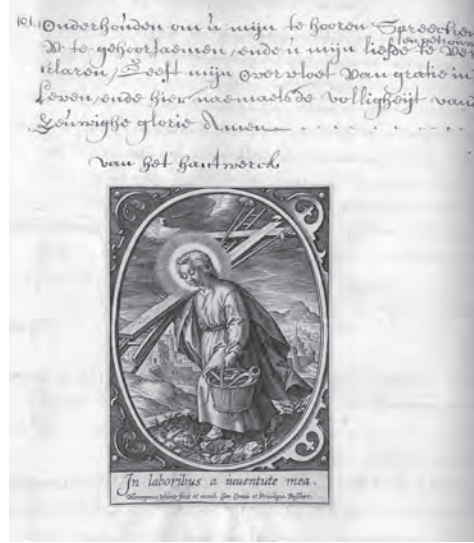 101. Onderhouden om u mijn te hooren Spreecken
en getrouw
V te gehoorsaemen, ende u mijn liefde te ver
claren, Geeft mijn overvloet van gratie in
Leven, ende hier naemaels de volligheijt vand
Eeuwighe glorie Amen
van het hantwerck
In laboribus a iuuentute mea.
Hieronymus Wierx fecit et excud. Cum Gratia et Privilegio. Buschere.